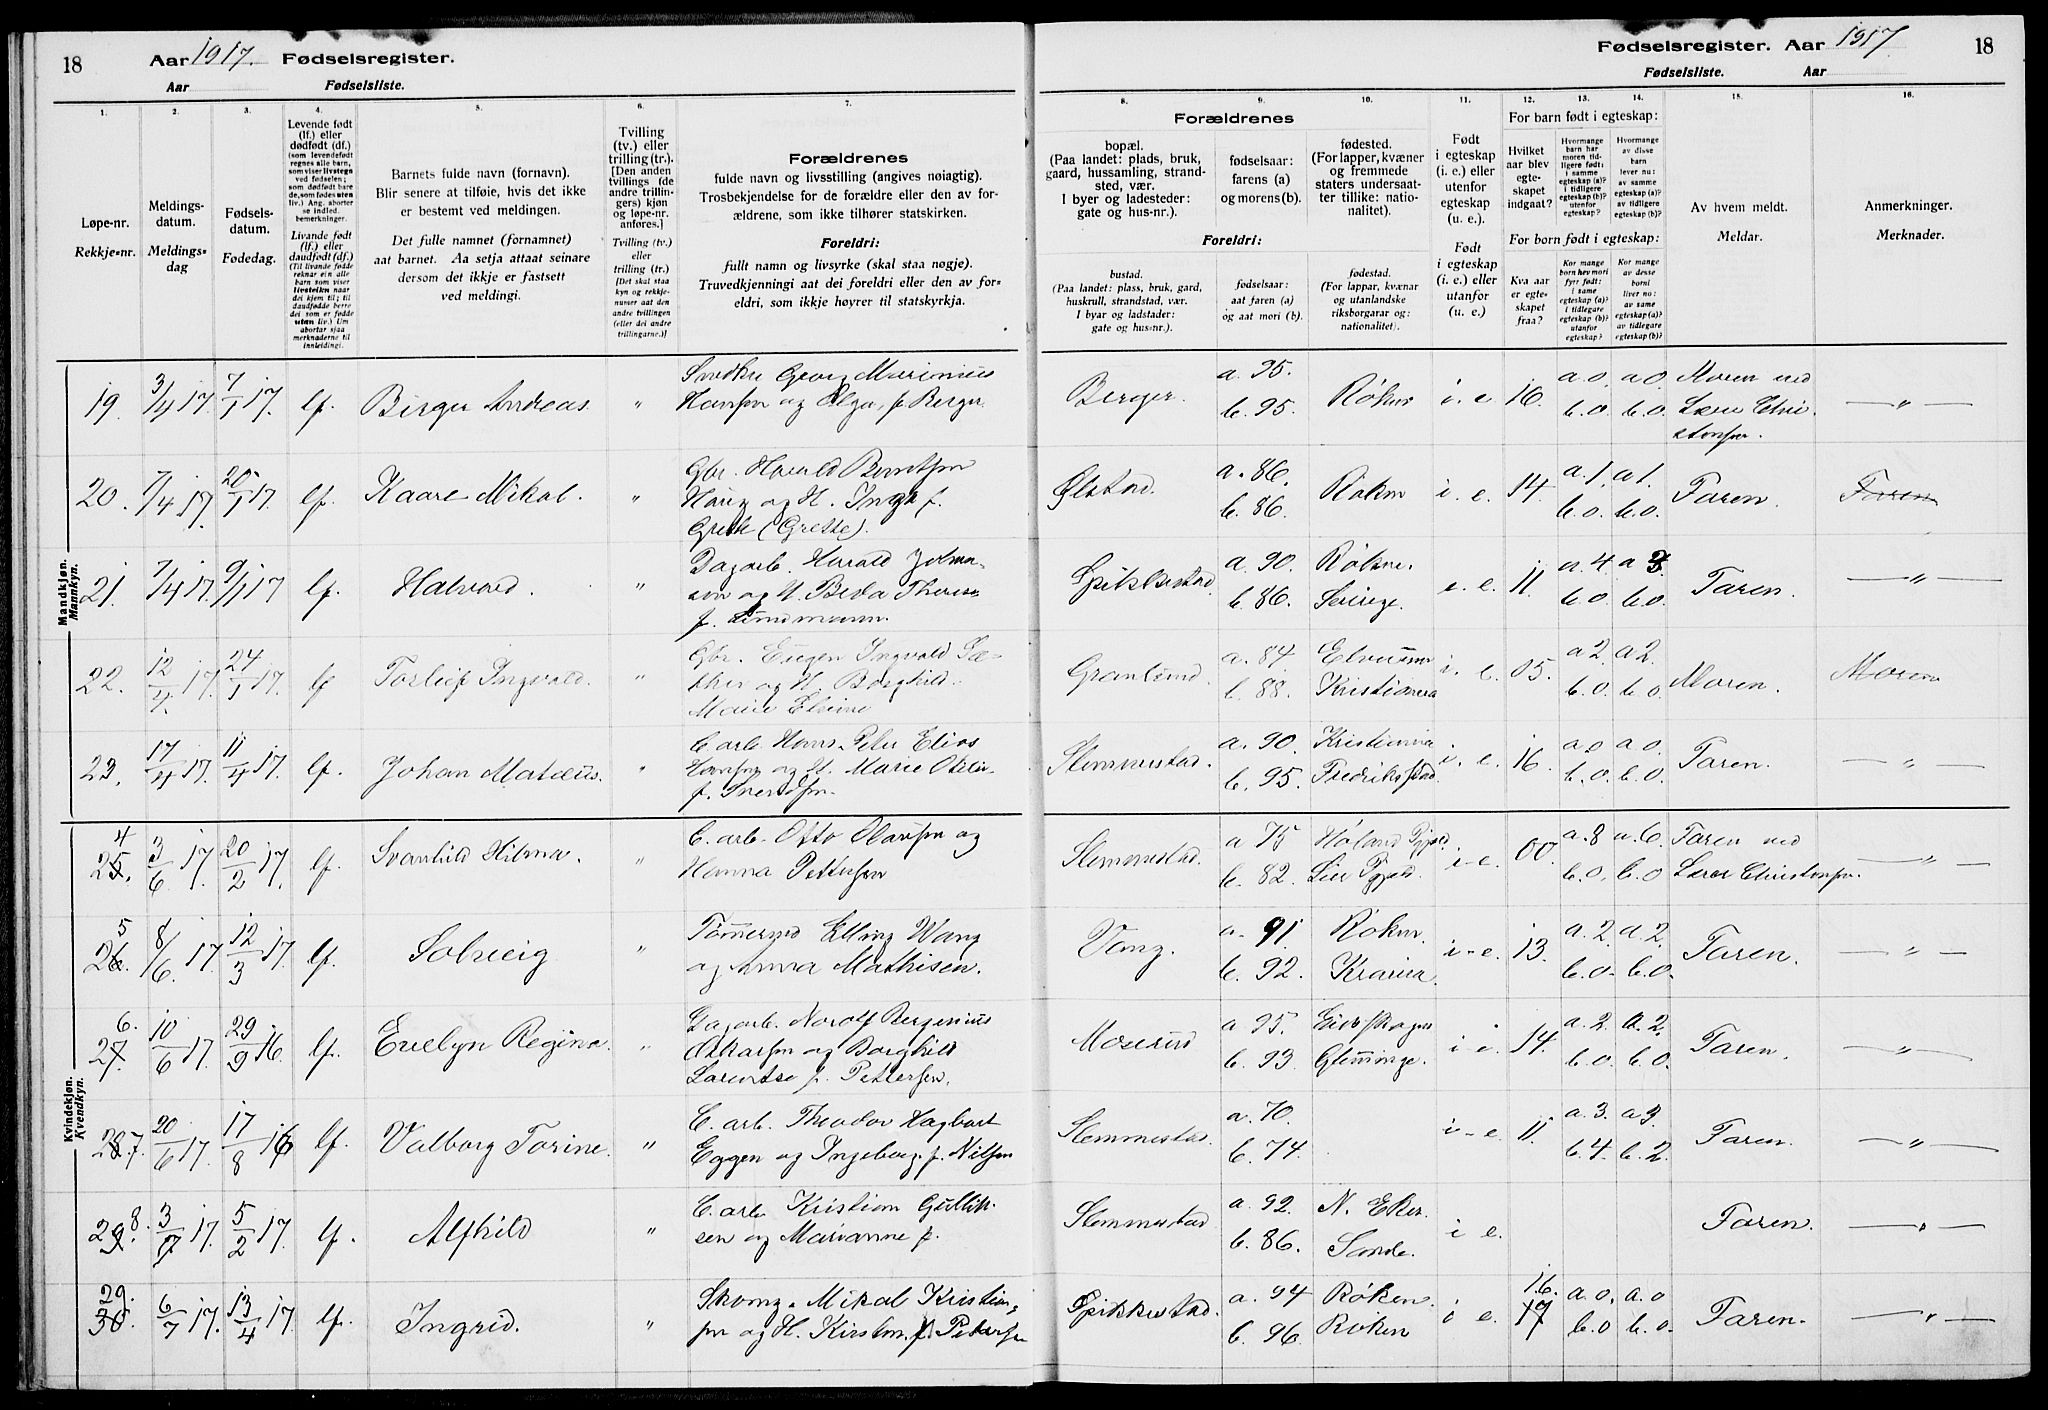 18
Aar 1917. Fødselsregister.
Aar Fødselsliste.
Fødselsregister. Aar 1917
18
Fødselsliste. Aar
1.
Løpe-nr.
Rekkje-nr.
2.
Meldings-
datum.
Meldings-
dag
3.
Fødsels-
datum.
Fødedag.
4.
Levende født
(lf.) eller
dødfødt (df.)
(som levendefødt
regnes alle barn,
som viser livstegn
ved fødselen;
som dødfødt bare
de, som fødes uten
liv.) Ang. aborter
se indled.
bemerkninger.
Livande født
(lf.) eller
daudfødt (df.)
(Til livande fødde
reknar ein alle
barn som viser
livsteikn naar
dei kjem til; til
daudfødde berre
dei som er fødde
utan liv.) Um
abortar sjaa
merknaderne til
innleidingi.
5.
Barnets fulde navn (fornavn).
Blir senere at tilføie, hvis det ikke
er bestemt ved meldingen.
Det fulle namnet (fornamnet)
aat barnet. Aa setja attaat seinare
dersom det ikkje er fastsett
ved meldingi.
6.
Tvilling
(tv.) eller
trilling (tr.).
[Den anden
tvillings (de
andre trillin-
gers) kjøn
og løpe-nr.
anføres.]
Tvilling (tv.)
eller
trilling (tr.)
[Det skal staa
kyn og rekkje-
numer aat den
andre tvillingen
(eller dei andre
trillingarne.)]
7.
Forældrenes
fulde navn og livsstilling (angives nøiagtig).
Trosbekjendelse for de forældre eller den av for-
ældrene, som ikke tilhører statskirken.
Foreldri:
fullt namn og livsyrke (skal staa nøgje).
Truvedkjenningi aat dei foreldri eller den av for-
eldri, som ikkje høyrer til statskyrkja.
Forældrenes
8.
bopæl.
(Paa landet: plads, bruk,
gaard, hussamling, strand-
sted, vær.
I byer og ladesteder:
gate og hus-nr.).
9.
fødselsaar:
farens (a)
og morens (b).
10.
fødested.
(For lapper, kvæner
og fremmede
staters undersaat-
ter tillike: natio-
nalitet).
Foreldri:
bustad.
(Paa landet: plass, bruk, gard,
huskrull, strandstad, vær.
I byar og ladstader:
gate og hus-nr.).
fødselsaar:
aat faren (a)
og aat mori (b).
fødestad.
(For lappar, kvænar
og utanlandske
riksborgarar og:
nationalitet).
11.
Født
i egteskap
(i. e.) eller
utenfor
egteskap
(u. e.).
Født
i egteskap
(i. e.) eller
utanfor
(u. e.)
For barn født i egteskap:
12.
Hvilket
aar blev
egte-
skapet
indgaat?
13.
Hvormange
barn har
moren tid-
ligere født:
i samme
egteskap (a)?
i tidligere
egteskap (b)?
utenfor
egteskap?
14.
Hvormange
av disse
barn
lever nu:
av samme
egteskap (a)?
av tidligere
egteskap (b)?
For born født i egteskap:
Kva aar
er egte-
skapet
fraa?
Kor mange
born hev mori
fyrr født:
i same
egteskap (a)?
i tidlegare
egteskap (b)?
utanfor
egteskap?
Kor mange
av desse
borni
liver no:
av same
egteskap (a)?
av tidlegare
egteskap (b)?
15.
Av hvem meldt.
Meldar.
16.
Anmerkninger.
Merknader.
Mandkjøn.
Mannkyn.
19. 3/4 17. 7/1 17. lf. Birger Andreas. "
Hansen og Olga, f. Berger.
Berger. a. 95. b. 95. i. e. 16. a.0. b.0. a.0 b.0. Moren ved
— " —
20. 7/4 17. 20/1 17. lf. Kaare Mikal. " Gbr. Harald Berntsen
Haug og H. Inga f.
Grette (Grette).
Ølstad. a. 86. b. 86. Røken i. e. 14. a.1. b.0. a1. b.0. Faren. Faren
21. 7/4 17. 9/1 17 lf. Halvard. " Dagarb. Harald Johan-
sen og H. Beda Therese
f. Lindmann.
Spikkestad a. 90. b. 86. Røken. e. e. 11. a.4 b.0. a 3. b.0. Faren. — " —
22. 12/4 17. 24/1 17. lf Torleif Ingvald. " Gbr. Eugen Ingvald Sæ-
ther og H. Borghild.
Marie Elvine
Granlund. a. 84. b. 88. Kristiania i. e. 05. a2. b.0. a2. b.0. Moren. Moren
23. 17/4 17. 11/4 17. lf. Johan Matæus. " C. arb. Hans Peter Elias
Hansen og H. Marie Otilie
f. Svendsen.
Slemmestad. a. 90. b. 95. Kristiania Fredriksstad. i. e. 16. a.0 b.0. a.0. b.0. Faren. — " —
Kvindekjøn.
Kvendkyn.
4
25. 3/6 17. 20/2 17. lf. Svanhild Hilma. " C. arb. Otto Olausen og
Hanna Pettersen
Slemmestad. a 75 b. 82. Høland Lier i-e. 00. a.8 b.0. a.6. b.0 Faren ved
Lærer Christensen. — " —
5
26. 8/6 17. 12/3 17. lf. Solveig " Tømmermd Elling Vang
og Anna Mathisen.
Vang. a. 91. b. 92. Røken. Krania. i-e. 13. a.2. b.0. a.2. b.0. Faren. — " —
6.
27. 10/6 17. 29/9 16. lf. Evelyn Regina. " Dagarb. Norolf Bergenius
Oskarsen og Borghild
Laurentse f. Pettersen.
Moserud a 95. b. 93 Glemminge. i e. 14. a.2. b.0. a.2. b.0. Faren. — " —
287. 20/6 17. 17/8 16 lf. Valborg Torine. " C. arb. Theodor Hagbart
Eggen og Ingeborg f. Nilsen
Slemmestad. a. 70. b. 74. i-e. 11. a.3. b.4. a3. b.2. Faren. — " —
8.
29. 3/7 17. 5/2 17. lf. Alfhild " C. arb Kristian Gullik-
sen og Marianne f.
Slemmestad a. 92. b. 86. N. Eker. Sande. i e. Faren. — " —
29.
30. 6/7 17. 13/4 17. lf. Ingrid. " Skomg. Mikal Kristian-
sen og H. Kirsten f. Petersen
Spikkestad. a. 94 b. 96. Røken. Røken i e. 16. 17 a.0. b.0 a.0 b.0. Faren. — " —